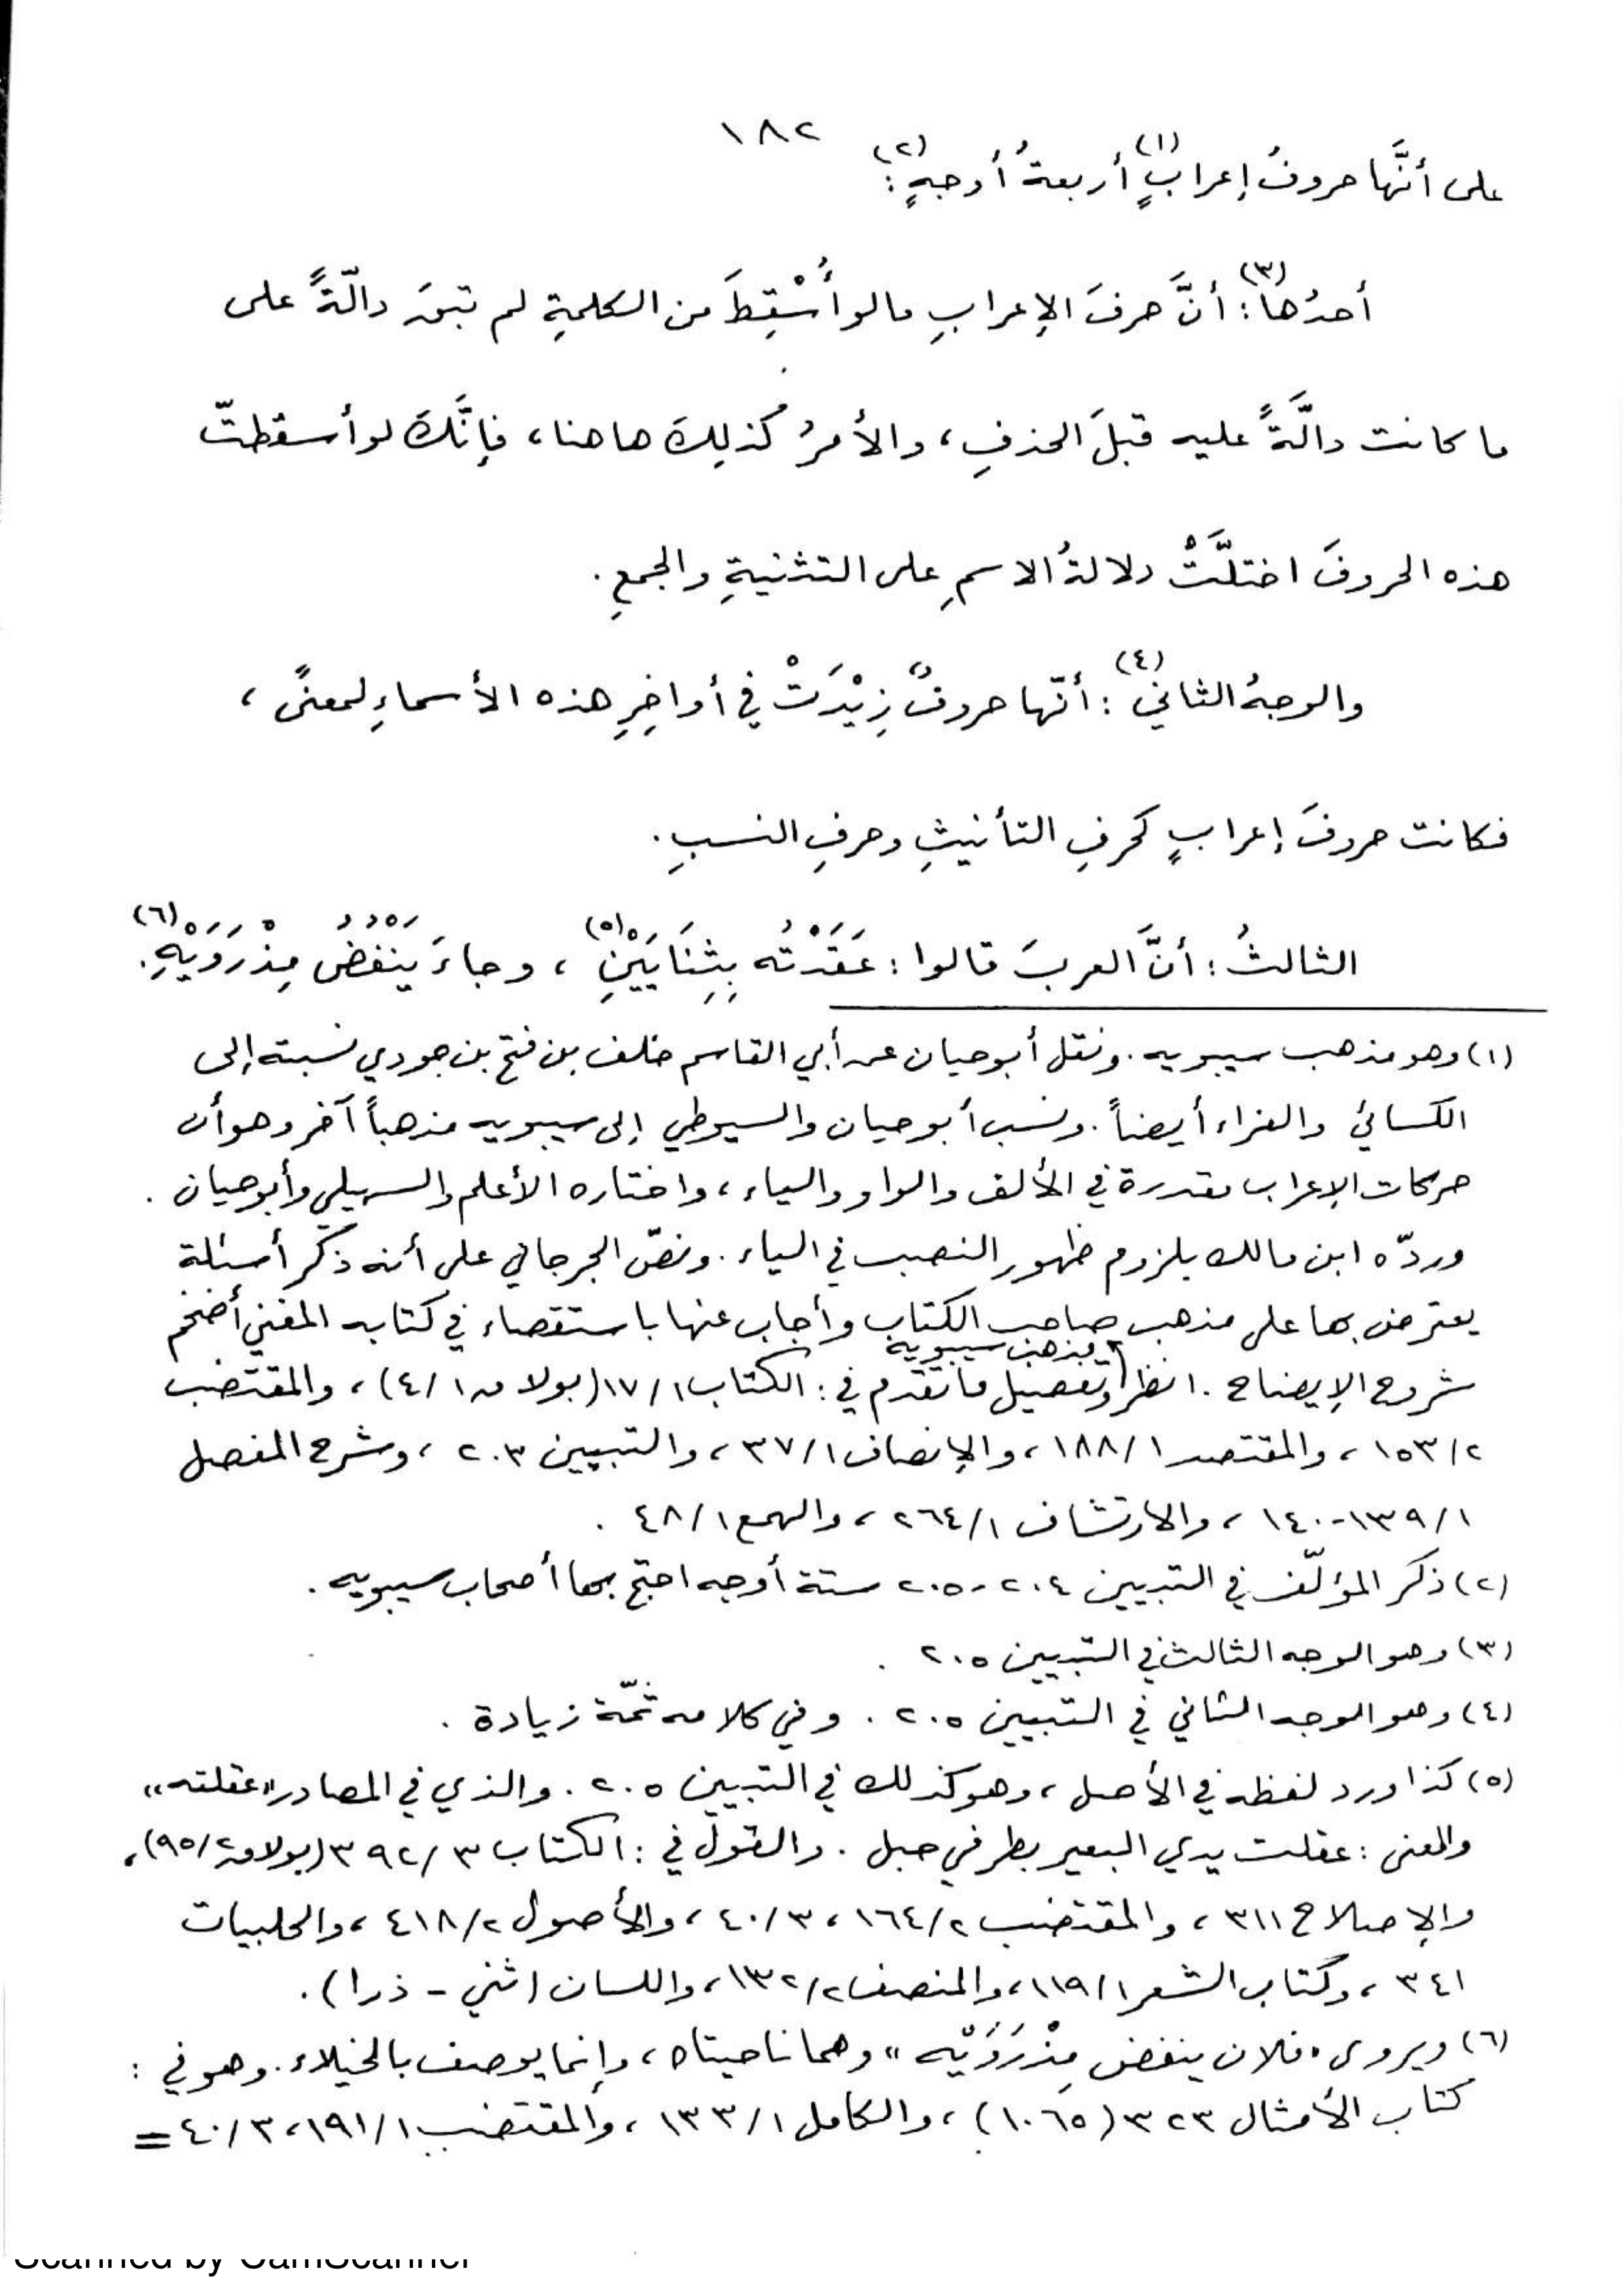 ١٨٢
على أنَّها حروفُ إعرابٍ(١) أربعةُ أوجهٍ(٢):
أحدُها(٣): أنَّ حرفَ الإعرابِ مالو أُسْقِطَ من الكلمةِ لم تبقَ دالّةً على
ما كانت دالَّةً عليه قبلَ الحذفِ، والأمرُ كذلِكَ هاهنا، فإنَّكَ لو أسقطتّ
هذه الحروفَ اختلَّتْ دلالةُ الاسمِ على التثنيةِ والجمعِ.
والوجهُ الثاني(٤): أنّها حروفٌ زِيْدَتْ في أواخِرِ هذه الأسماءِ لمعنًى،
فكانت حروفَ إعرابٍ كحرفِ التأنيثِ وحرفِ النسبِ.
الثالثُ: أنَّ العربَ قالوا: عَقَدْتُه بِثِنَايَيْنِ(٥)، وجاءَ يَنْفُضُ مِذْرَوَيْهِ(٦).
(١) وهو مذهب سيبويه. ونقل أبو حيان عن أبي القاسم خلف بن فتح بن جودي نسبته إلى
الكسائي والفراء أيضاً. ونسب أبو حيان والسيوطي إلى سيبويه مذهباً آخر وهو أن
حركات الإعراب مقدرة في الألف والواو والياء، واختاره الأعلم والسهيلي وأبو حيان.
وردّه ابن مالك بلزوم ظهور النصب في الياء. ونصّ الجرجاني على أنه ذكر أسئلة
يعترض بها على مذهب صاحب الكتاب وأجاب عنها باستقصاء في كتابه المغني أضخم
شروح الإيضاح. انظر مذهب سيبويه وتفصيل ما تقدم في: الكتاب ١/١٧ (بولاق ١/٤)، والمقتضب
٢/١٥٣، والمقتصد ١/١٨٨، والإنصاف ١/٣٧، والتبيين ٢٠٣، وشرح المفصل
١/١٣٩-١٤٠، والارتشاف ١/٢٦٤، والهمع ١/٤٨.
(٢) ذكر المؤلّف في التبيين ٢٠٤-٢٠٥ ستة أوجه احتج بها أصحاب سيبويه.
(٣) وهو الوجه الثالث في التبيين ٢٠٥.
(٤) وهو الوجه الثاني في التبيين ٢٠٥. وفي كلامه ثمّة زيادة.
(٥) كذا ورد لفظه في الأصل، وهو كذلك في التبيين ٢٠٥. والذي في المصادر «عقلته»
والمعنى: عقلت يدي البعير بطرفي حبل. والقول في: الكتاب ٣/٣٩٢ (بولاق ٢/٩٥)،
والإصلاح ٣١١، والمقتضب ٢/١٦٤، ٣/٤٠، والأصول ٢/٤١٨، والحلبيات
٣٤١، وكتاب الشعر ١/١١٩، والمنصف ٢/١٣٢، واللسان (ثني - ذرا).
(٦) ويروى «فلان ينفض مِذْرَوَيْه» وهما ناحيتاه، وإنما يوصف بالخيلاء. وهو في:
كتاب الأمثال ٣٢٣ (١٠٦٥)، والكامل ١/١٣٣، والمقتضب ١/١٩١، ٣/٤٠ =
Scanned by CamScanner